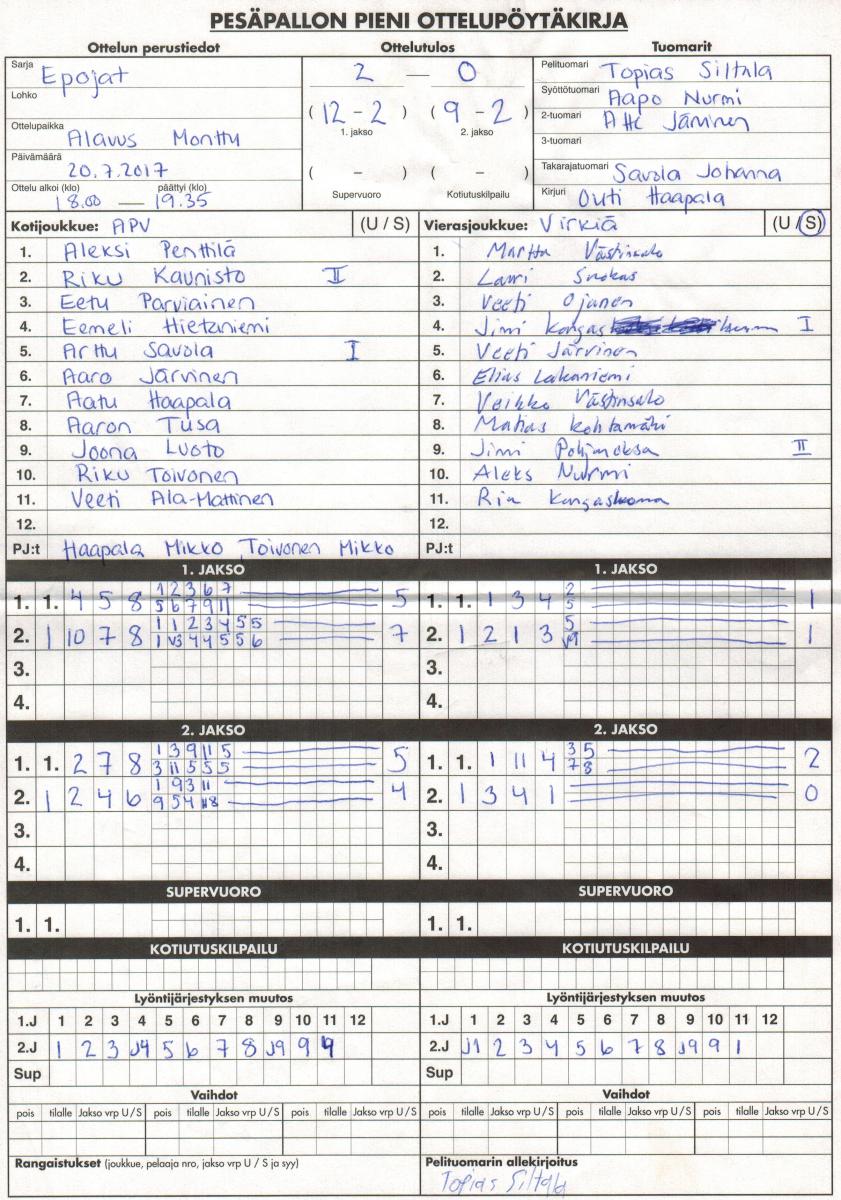 PESÄPALLON PIENI OTTELUPÖYTÄKIRJA
Ottelun perustiedot
Sarja Epojat
Lohko
Ottelupaikka Alavus Monttu
Päivämäärä 20.7.2017
Ottelu alkoi (klo) päättyi (klo)
18.00 — 19.35
Ottelutulos
2 — 0
(12 - 2) (9 - 2)
1. jakso 2. jakso
( – ) ( – )
Supervuoro Kotiutuskilpailu
Tuomarit
Pelituomari Topias Siltala
Syöttötuomari Aapo Nurmi
2-tuomari Atte Jäminen
3-tuomari
Takarajatuomari Savola Johanna
Kirjuri Outi Haapala
Kotijoukkue: APV (U / S)
1. Aleksi Penttilä
2. Riku Kaunisto II
3. Eetu Parviainen
4. Eemeli Hietaniemi
5. Arttu Savola I
6. Aaro Järvinen
7. Aatu Haapala
8. Aaron Tusa
9. Joona Luoto
10. Riku Toivonen
11. Veeti Ala-Mattinen
12.
PJ:t Haapala Mikko, Toivonen Mikko
Vierasjoukkue: Virkiä (U / S)
1. Martta Västinsalo
2. Lauri
3. Veeti Ojanen
4. Jimi I
5. Veeti Järvinen
6. Elias Lakaniemi
7. Veikko Västinsalo
8. Matias Kohtamäki
9. Jimi II
10. Aleks Nurmi
11. Ria
12.
PJ:t
1. JAKSO
1. 1. 4 5 8
1 2 3 6 7
5 6 7 9 11
5
2. 1 10 7 8
1 1 2 3 4 5 5
1 V3 4 4 5 5 6
7
3.
4.
1. JAKSO
1. 1. 1 3 4
2
5
1
2. 1 2 1 3
5
J9
1
3.
4.
2. JAKSO
1. 1. 2 7 8
1 3 9 11 5
3 11 5 5 5
5
2. 1 2 4 6
1 9 3 11
9 5 4 J8
4
3.
4.
2. JAKSO
1. 1. 1 11 4
3 5
7 8
2
2. 1 3 4 1
0
3.
4.
SUPERVUORO
1. 1.
SUPERVUORO
1. 1.
KOTIUTUSKILPAILU
KOTIUTUSKILPAILU
Lyöntijärjestyksen muutos
1.J 1 2 3 4 5 6 7 8 9 10 11 12
2.J 1 2 3 J4 5 6 7 8 J9 9 9
Sup
Lyöntijärjestyksen muutos
1.J 1 2 3 4 5 6 7 8 9 10 11 12
2.J J1 2 3 4 5 6 7 8 J9 9 1
Sup
Vaihdot
pois tilalle Jakso vrp U / S pois tilalle Jakso vrp U / S pois tilalle Jakso vrp U / S
Vaihdot
pois tilalle Jakso vrp U / S pois tilalle Jakso vrp U / S pois tilalle Jakso vrp U / S
Rangaistukset (joukkue, pelaaja nro, jakso vrp U / S ja syy)
Pelituomarin allekirjoitus
Topias Siltala